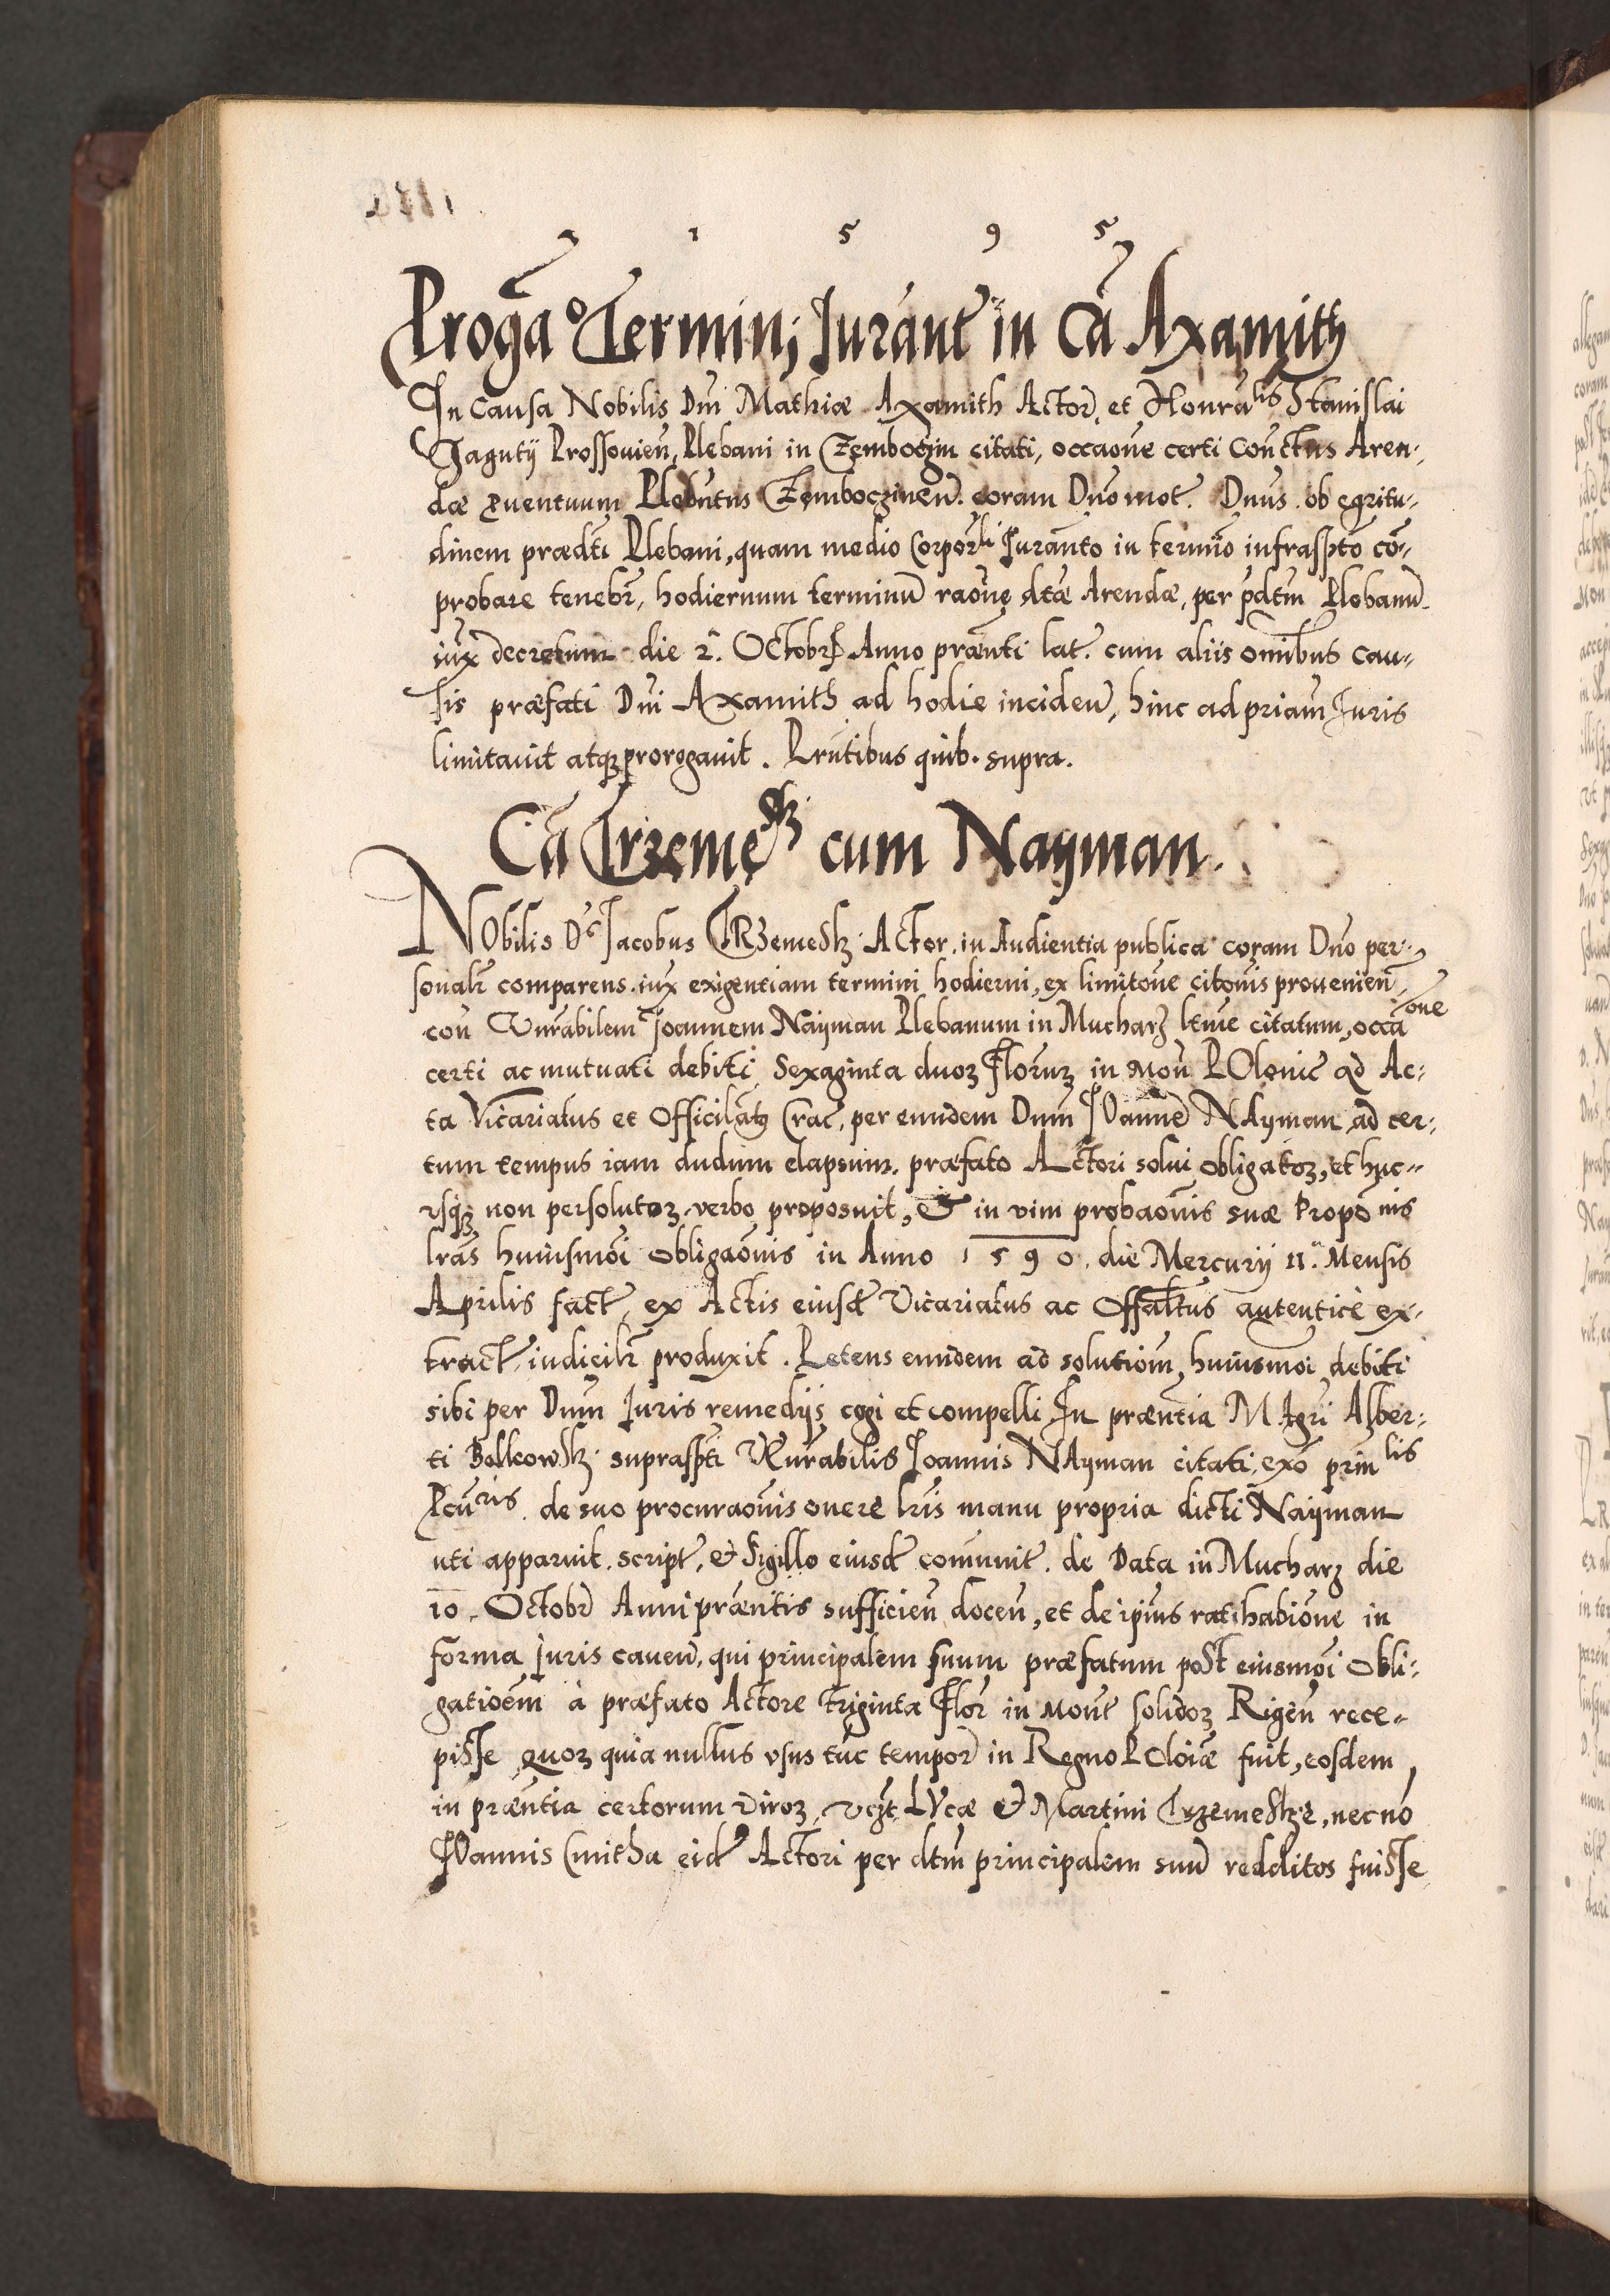 1 5 9 5
Progā° Termini Jurānt in Cā Axamith
In causa Nobilis Dni Mathiæ Axamith Actor. et Honra^lis Stanislai
Jagutij Prossouien, Plebani in Czemboczin citati, occaone certi Conctus Aren-
dæ puentuum Plebntus Czemboczinen. coram Dno mot. Dnus. ob egritu-
dinem prædti Plebani, quam medio Corpor^li Juranto in termio infrasptō cō-
probare tenebr, hodiernum terminū raone dtæ Arendæ, per pdtm Plebanū.
iux decretum die 2ᵃ. Octobr Anno prænti lat. cum aliis omibus cau-
sis præfati Dni Axamith ad hodie inciden, hinc ad priam Juris
limitauit atq; prorogauit. Prntibus quib. supra.
Cā Trzemesk cum Nayman.
NObilis Ds Jacobus TRZemesk. Actor. in Audientia publica coram Dno per-
sonalr comparens. iux exigentiam termini hodierni, ex limitone citonis prouenien
con Vnrabilem Joannem Nayman Plebanum in Mucharz ltme citatum, occa^one
certi ac mutuati debiti Sexaginta duoz Flornz in Mon POlonic ad Ac-
ta Vicariatus et Officilatus Crac, per eundem Dnm JOanne NAyman ad cer-
tum tempus iam dudum elapsum. præfato Actori solui obligatoz, et huc-
vsq; non persolutoz. verbo proposuit, & in vim probaonis suæ Propo nis
lrās huiusmoi obligaonis in Anno 1590. die Mercurij 11.ᵃ Mensis
Aprilis fact, ex Actis eiusd Vicariatus ac Offaltus autenticè ex-
tract, iudicilr produxit. Petens eundem ad solutiom, huiusmoi debiti
sibi per Dnm Juris remedijs cogi et compelli In præntia MAgri Alber-
ti Bolkowsk. suprasptī VEnrabilis Joannis NAyman citati, exō prin^lis
Pcu^ris. de suo procuraonis onere lris manu propria dicti Nayman
uti apparuit. script, & Sigillo eiusd comunit. de Data in Mucharz die
10. Octobr Anni præntis sufficien docen, et de ipius ratihabione in
forma Juris cauen. qui principalem suum præfatum post eiusmoi Obli-
gatioem à præfato Actore triginta Flor in Mont solidoz Rigen rece-
pisse quoz quia nullus vsus tūc tempor in Regno POloiæ fuit, eosdem
in præntia certorum viroz, vczt LVcæ & Martini Trzemeskie, necnō
JOannis Cmitha eid Actori per dtm principalem suū redditos fuisse